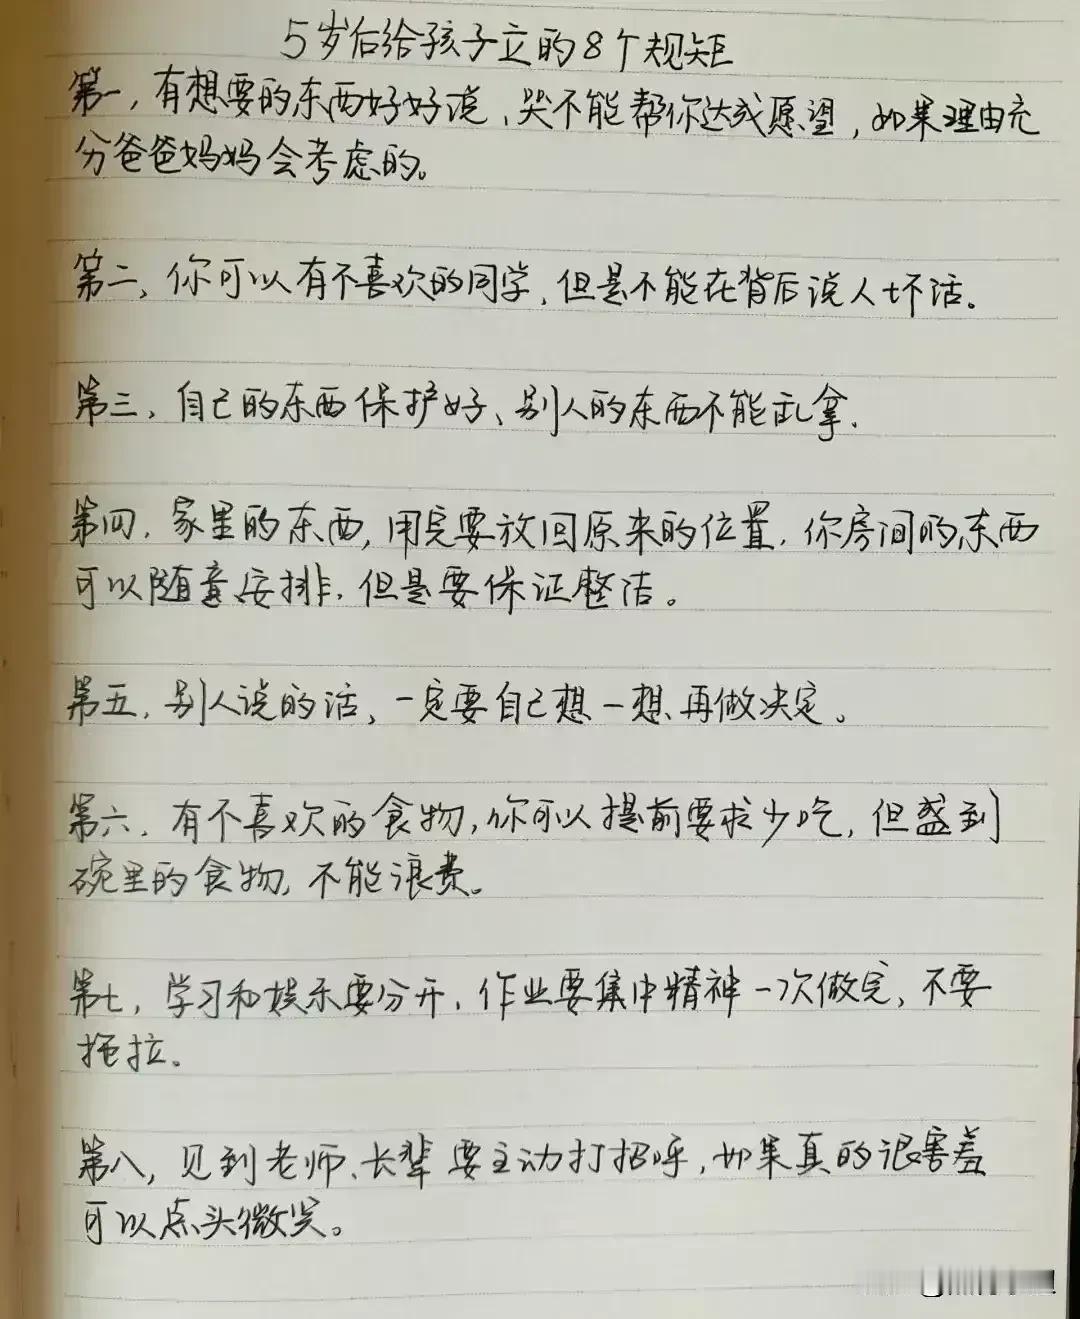 5岁后给孩子立的8个规矩
第一，有想要的东西好好说，哭不能帮你达成愿望，如果理由充
分爸爸妈妈会考虑的。
第二，你可以有不喜欢的同学，但是不能在背后说人坏话。
第三，自己的东西保护好、别人的东西不能乱拿.
第四，家里的东西，用完要放回原来的位置，你房间的东西
可以随意安排，但是要保证整洁。
第五，别人说的话，一定要自己想一想再做决定。
第六，有不喜欢的食物，你可以提前要求少吃，但盛到
碗里的食物，不能浪费。
第七，学习和娱乐要分开，作业要集中精神一次做完，不要
拖拉。
第八，见到老师、长辈要主动打招呼，如果真的很害羞
可以点头微笑。